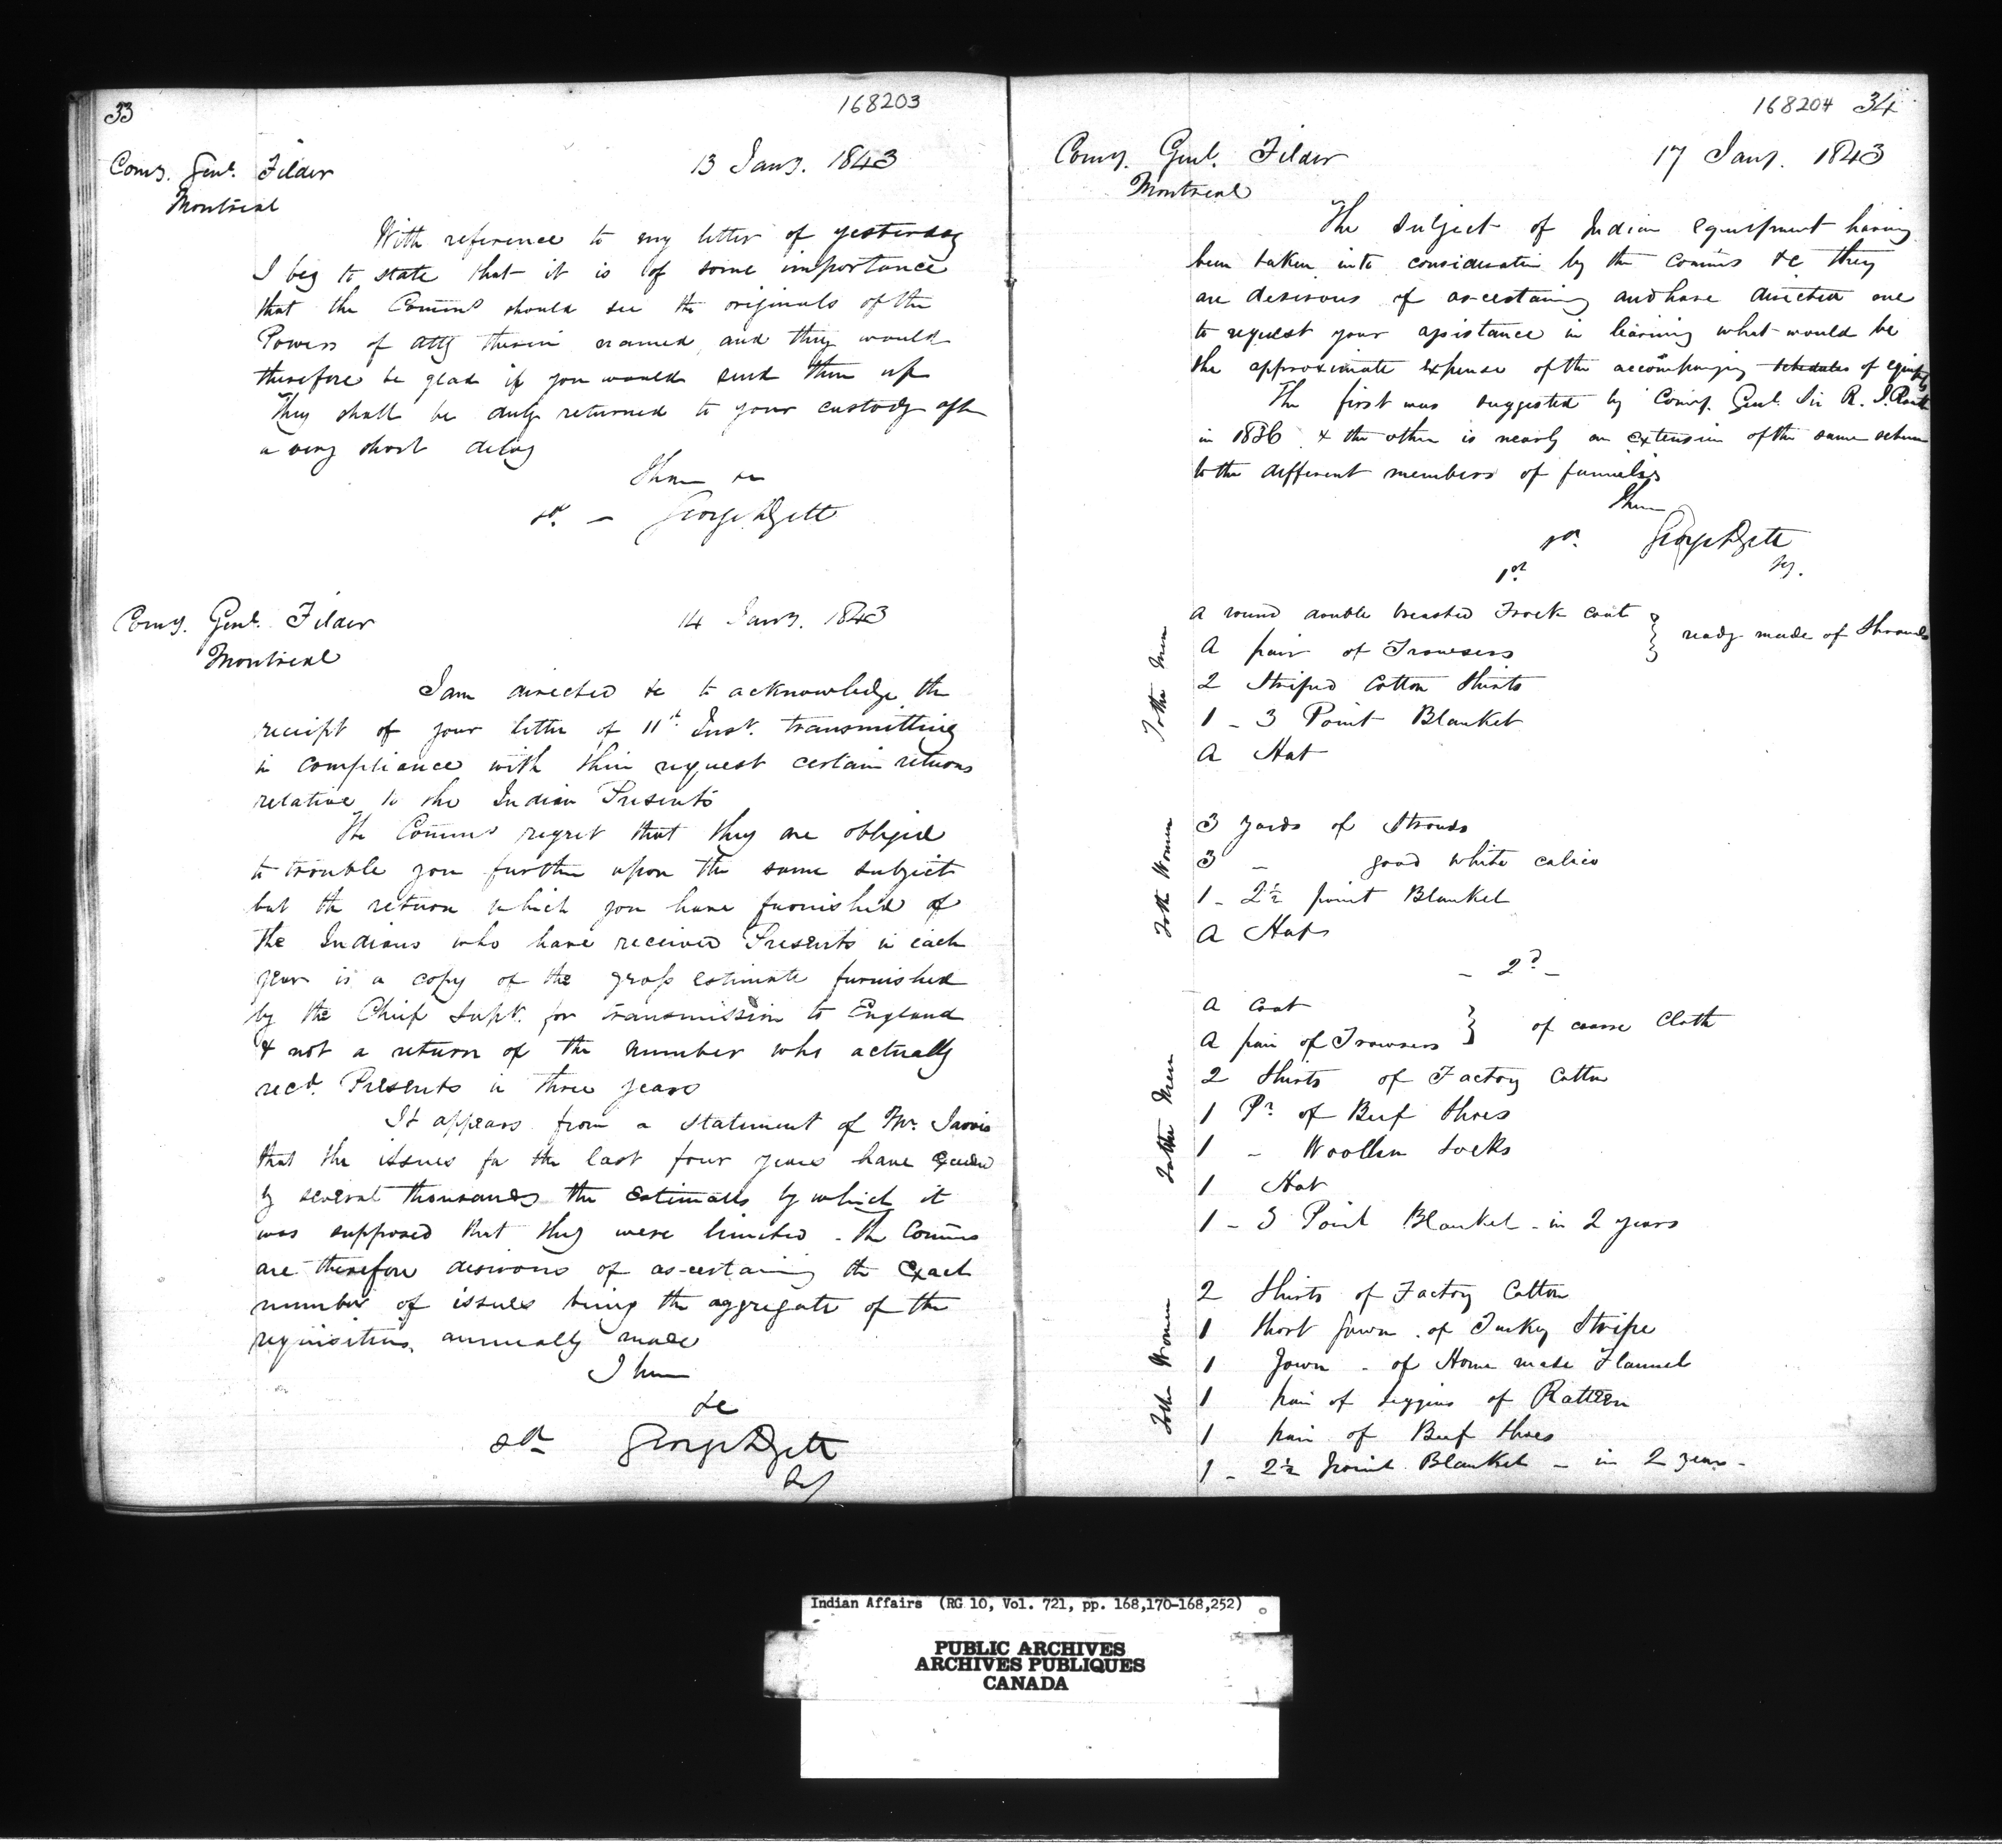 33
168203
Comy. Genl. Filder
13 Jany. 1843
Montreal
With reference to my letter of yesterday
I beg to state that it is of some importance
that the Comms should see the originals of the
Powers of Atty therein named, and they would
therefore be glad if you would send them up
They shall be duly returned to your custody after
a very short delay
I have &c
sd. – George
Comy. Genl. Filder
14 Jany. 1843
Montreal
I am directed &c to acknowledge the
receipt of your letter of 11th Inst. transmitting
in compliance with their request certain returns
relative to the Indian Presents
The Comms regret that they are obliged
to trouble you further upon the same subject
but the return which you have furnished of
the Indians who have received Presents in each
year is a copy of the gross estimate furnished
by the Chief Supt. for transmission to England
& not a return of the number who actually
recd. Presents in three years
It appears from a statement of Mr. Jarvis
that the issues for the last four years have exceeded
by several thousands the estimates by which it
was supposed that they were limited – the Comms
are therefore desirous of ascertaining the exact
number of issues being the aggregate of the
requisitions annually made
I have
&c
sd George
Sey
168204 34
Comy. Genl. Filder
17 Jany. 1843
Montreal
The subject of Indian equipment having
been taken into consideration by the Comms &c they
are desirous of ascertaining and have directed me
to request your assistance in learning what would be
the approximate expense of the accompanying schedules of equipt
The first was suggested by Comy. Genl. Sir R. I. Routh
in 1836 & the other is nearly an extension of the same scheme
to the different members of families
I have
sd. George
Sey.
1st
To the Men
A round double breasted Frock coat
A pair of Trowsers
} ready made of Strouds
2 Striped Cotton Shirts
1 – 3 Point Blanket
A Hat
To the Women
3 yards of Strouds
3 – good white calico
1 – 2½ point Blanket
A Hat
– 2d –
To the Men
A coat
A pair of Trowsers
} of coarse Cloth
2 Shirts of Factory Cotton
1 Pr. of Beef Shoes
1 – Woollen Socks
1 Hat
1 – 3 Point Blanket – in 2 years
To the Women
2 Shirts of Factory Cotton
1 Short Gown of Turkey Stripe
1 Gown – of Home made Flannel
1 pair of Leggins of Ratteen
1 pair of Beef Shoes
1 – 2½ Point Blanket – in 2 years –
Indian Affairs (RG 10, Vol. 721, pp. 168,170-168,252)
PUBLIC ARCHIVES
ARCHIVES PUBLIQUES
CANADA